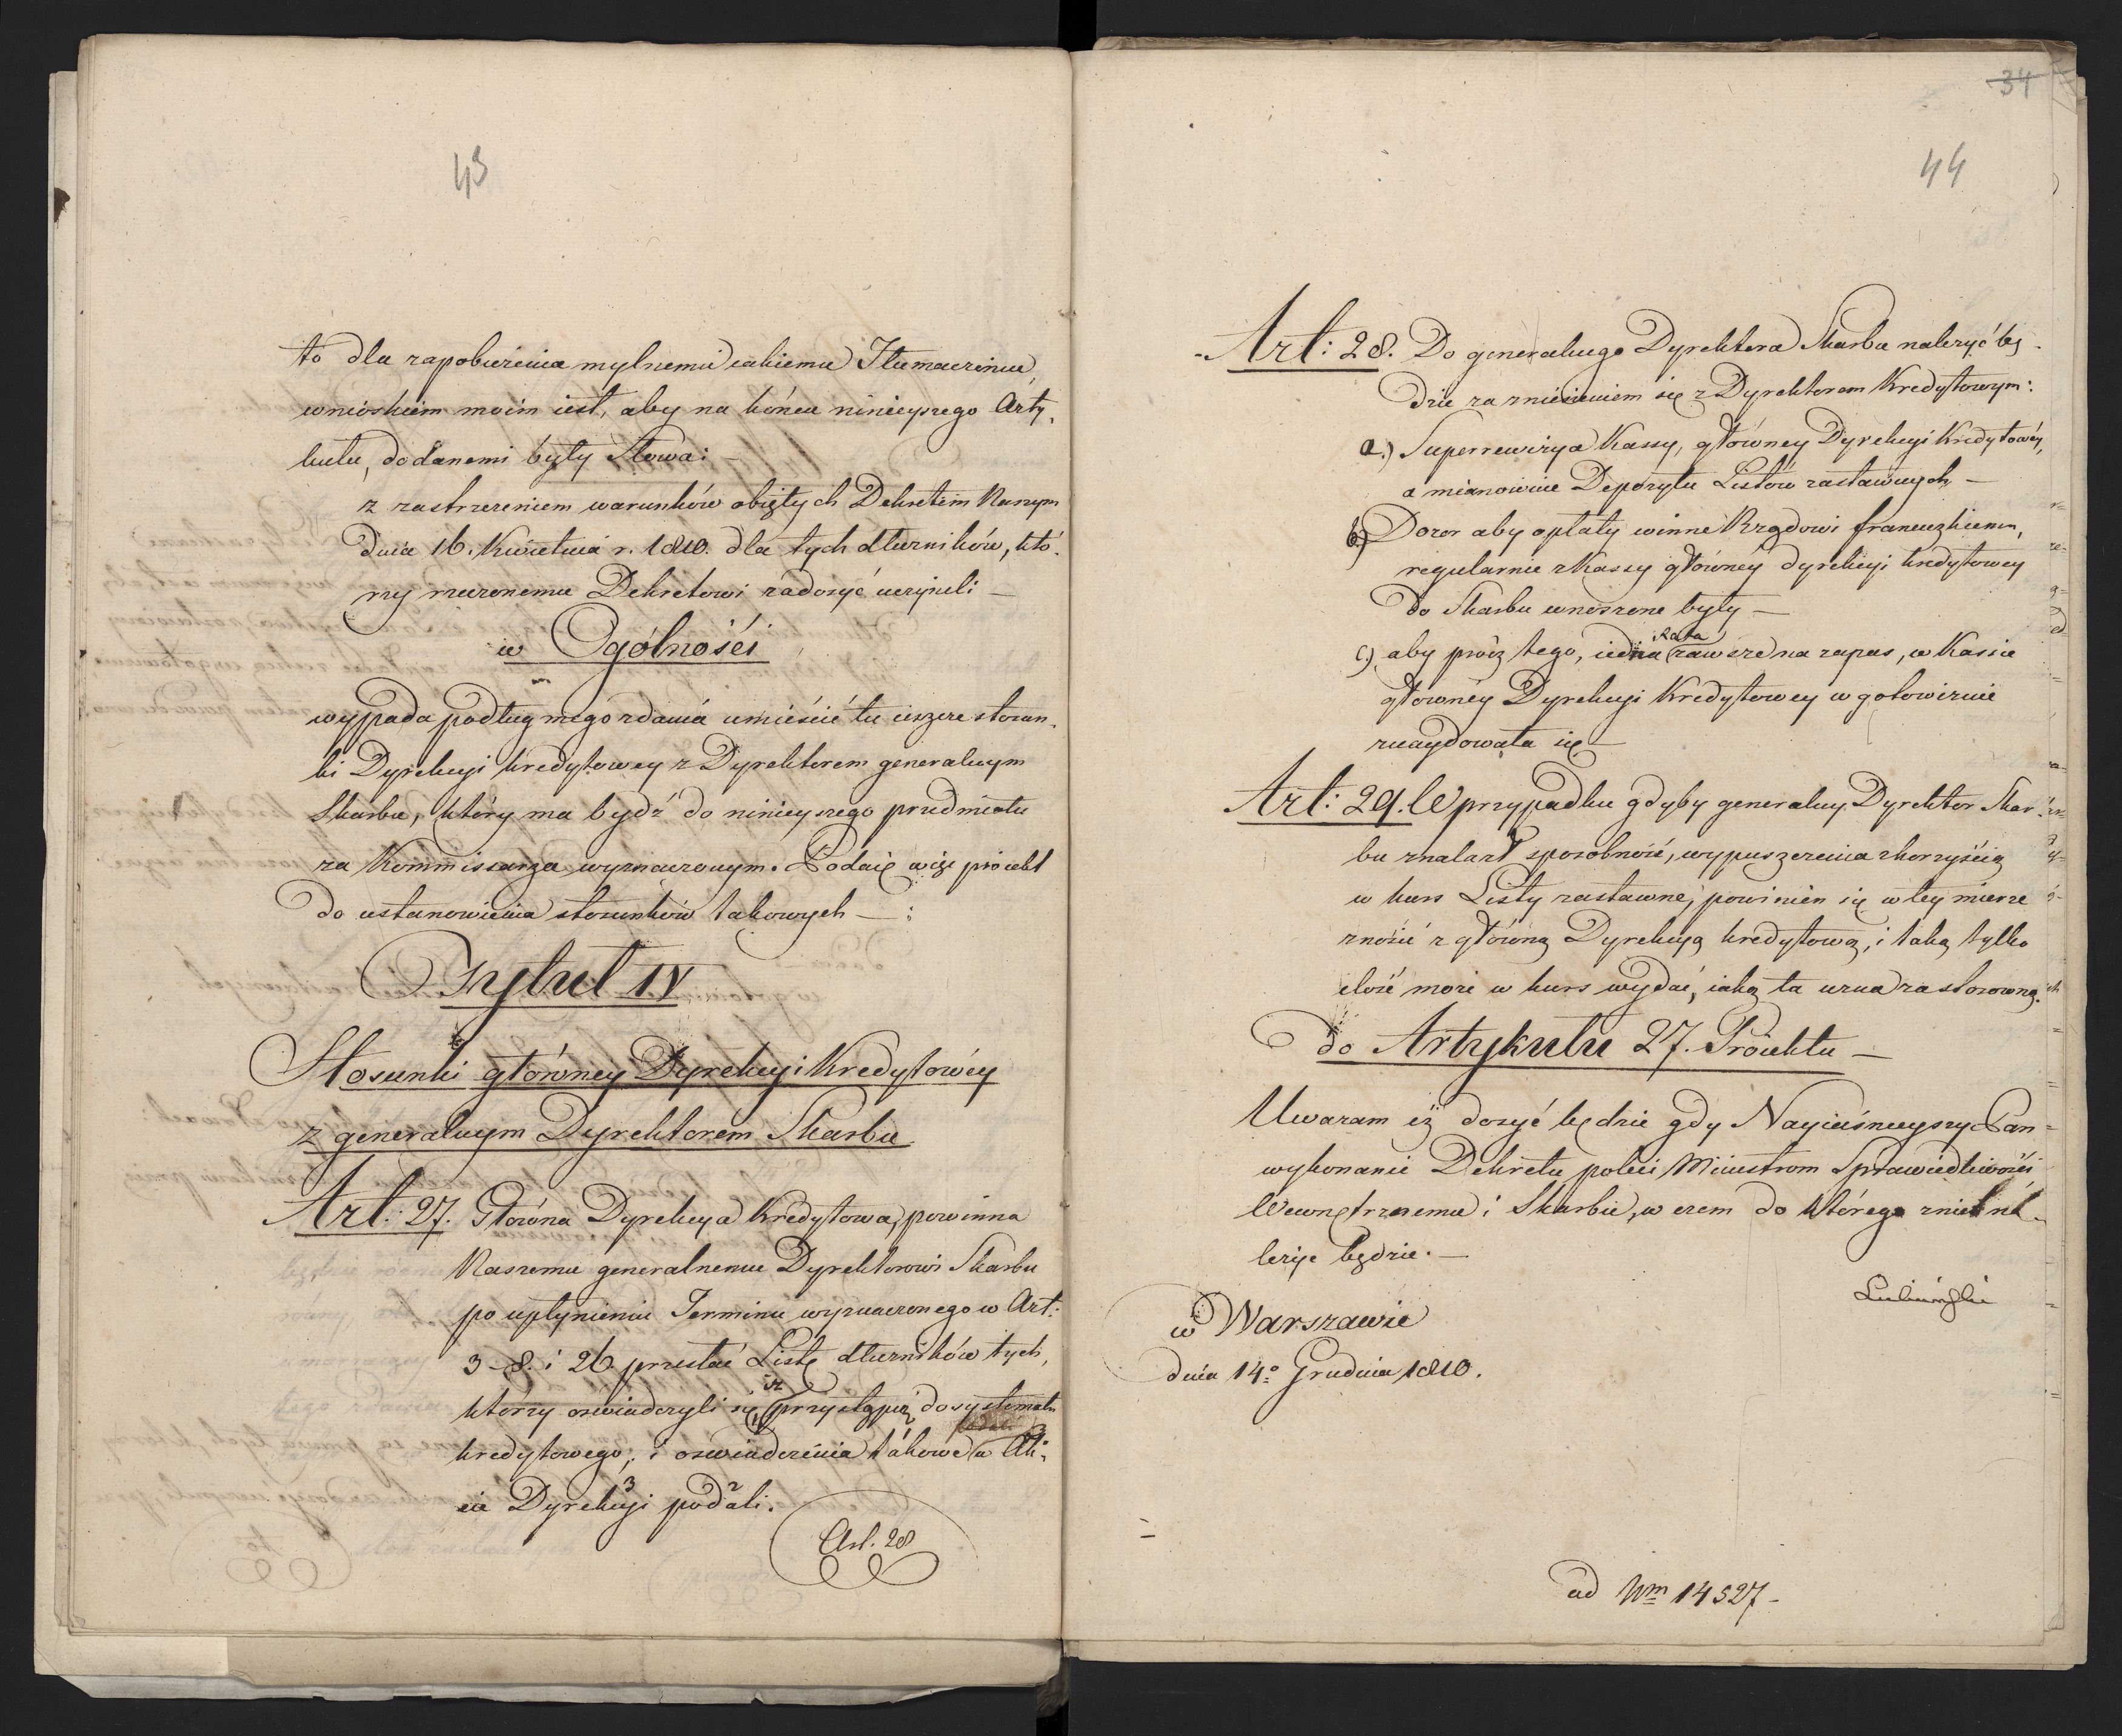 43
to dla zapobieżenia mylnemu iakiemu Tłumaczeniu,
wnioskiem moim iest, aby na końcu ninieyszego Arty-
kułu, dodanemi były Słowa: —
z zastrzeżeniem warunków obiętych Dekretem Naszym
dnia 16. Kwietnia r. 1810. dla tych dłużników, któ-
rzy rzeczonemu Dekretowi zadosyć uczynili —
w Ogólności
wypada podług mego zdania umieścić tu ieszcze stosun-
ki Dyrekcyi kredytowey z Dyrektorem generalnym
Skarbu, który ma bydź do ninieyszego przedmiotu
za Kommissarza wyznaczonym. Podaię więc proiekt
do ustanowienia stosunków takowych — :
Tytuł IV
Stosunki główney Dyrekcyi Kredytowéy
z generalnym Dyrektorem Skarbu
Art: 27. Główna Dyrekcya Kredytowa, powinna
Naszemu generalnemu Dyrektorowi Skarbu
po upłynieniu Terminu wyznaczonego w Art:
3-8. i 26 przesłać Listę dłużników tych,
którzy oswiadczyli się, iż przystąpią do systematu
kredytowego, i oswiadczenia takowe w Ak-
cie Dyrekcyi podali.
Art. 28
34
44
Art: 28. Do generalnego Dyrektora Skarbu należyć bę-
dzie za zniesieniem się z Dyrektorem Kredytowym:
a.) Superrewizya Kassy, główney Dyrekcyi Kredytowéy,
a mianowicie Depozytu Listów zastawnych —
b.) Dozor aby opłaty winne Rządowi francuzkiemu,
regularnie z Kassy główney dyrekcyi kredytowey
do Skarbu wnoszone były —
c.) aby prócz tego, iedna Rata zawsze na zapas, w Kassie
główney Dyrekcyi Kredytowey w gotowiznie
znaydowała się —
Art: 29. W przypadku gdyby generalny Dyrektor Skar-
bu znalazł sposobność, wypuszczenia z korzyścią
w kurs Listy zastawne, powinien się w tey mierze
znosić z główną Dyrekcyą kredytową, i taką tylko
ilość może w kurs wydać, iaką ta uzna za stosowną.
do Artykułu 27. Proiektu —
Uważam iż dosyć będzie gdy Nayiaśnieyszy Pan
wykonanie Dekretu poleci Ministrom Sprawiedliwości
Wewnętrznemu i Skarbu, w czem do którego z nich na-
leżyć będzie. —
Łubieński
w Warszawie
dnia 14º Grudnia 1810.
ad Nm 14527-